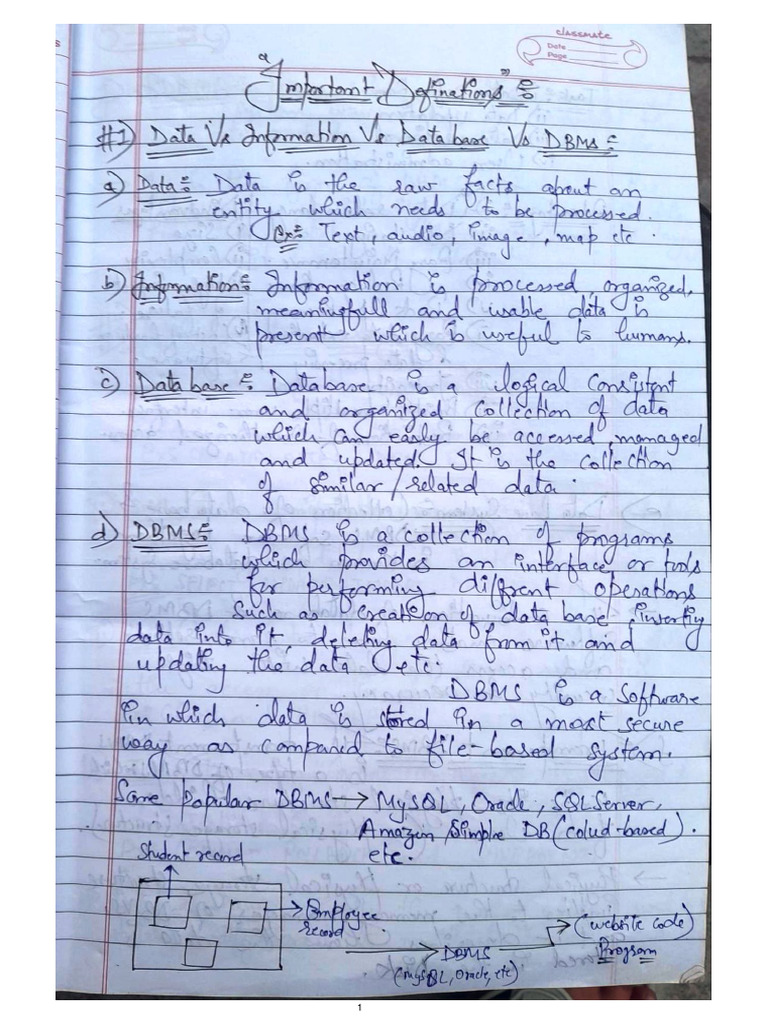 classmate
Date
Page
"Important Definations" :-
#1) Data Vs Information Vs Data base Vs DBMS :-
a) Data :- Data is the raw facts about an
entity which needs to be processed.
Ex:- Text, audio, image, map etc.
b) Information :- Information is processed, organized,
meaningfull and usable data is
present which is useful to humans.
c) Data base :- Database is a logical consistent
and organized collection of data
which can easly be accessed, managed
and updated. It is the collection
of similar/related data.
d) DBMS :- DBMS is a collection of programs
which provides an interface or tools
for performing different operations
such as creation of data base, inserting
data into it, deleting data from it and
updating the data etc.
DBMS is a software
in which data is stored in a most secure
way as compared to file-based system.
Some popular DBMS → MySQL, Oracle, SQL Server,
Amazon Simple DB (colud-based).
etc.
Student record
Employee
record
DBMS
(MySQL, Oracle, etc)
(website code)
Program
1